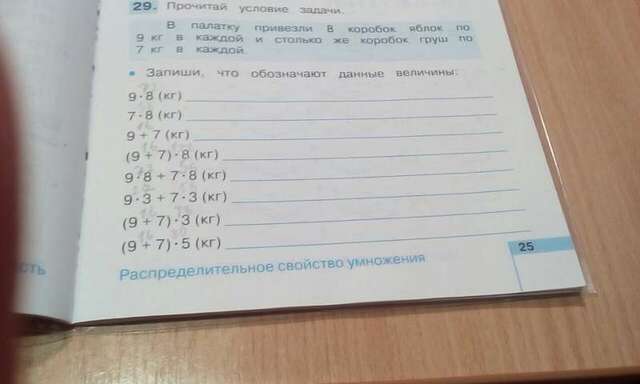 29. Прочитай условие задачи.
В палатку привезли 8 коробок яблок по
9 кг в каждой и столько же коробок груш по
7 кг в каждой.
• Запиши, что обозначают данные величины:
9 · 8 (кг)
7 · 8 (кг)
9 + 7 (кг)
(9 + 7) · 8 (кг)
9 · 8 + 7 · 8 (кг)
9 · 3 + 7 · 3 (кг)
(9 + 7) · 3 (кг)
(9 + 7) · 5 (кг)
25
Распределительное свойство умножения